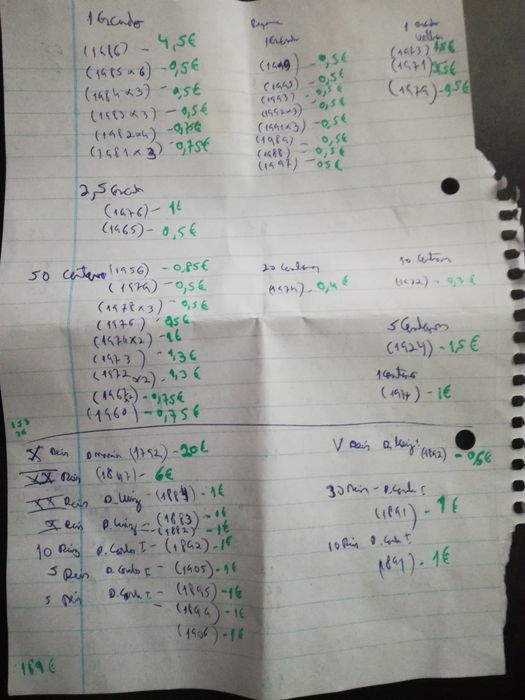 1 Escudo
(1986) - 4,5€
(1985 x 6) - 0,5€
(1984 x 3) - 0,5€
(1983 x 3) - 0,5€
(1982 x 4) - 0,75€
(1981 x 3) - 0,75€
1 Escudo
(1999) - 0,5€
(1995) - 0,5€
(1993) - 0,5€
(1992 x 3) - 0,5€
(1991 x 3) - 0,5€
(1989) - 0,5€
(1988) - 0,5€
(1997) - 0,5€
1 escudo
velho
(1973)
(1971)
(1979) - 0,5€
2,5 Escudo
(1976) - 1€
(1965) - 0,5€
50 Centavos (1956) - 0,85€
(1979) - 0,5€
(1978 x 3) - 0,5€
(1976)
(1974 x 2) - 1€
(1973)
(1972 x 2)
- 0,75€
(1960) - 0,75€
20 Centavos
(1974) - 0,4€
10 Centavos
(1972) - 0,3€
5 Centavos
(1924) - 1,5€
1 Centavo
- 1€
X Reis D. Maria (1792) - 20€
XX Reis (1847) - 6€
XX Reis D. Luiz - 1€
X Reis D. Luiz - (1883) - 1€
- (1882) - 1€
10 Reis D. Carlos I - (1892) - 1€
5 Reis D. Carlos I - (1905) - 1€
5 Reis D. Carlos I - (1895) - 1€
- (1899) - 1€
(1906) - 1€
V Reis D. Luiz I (1882) - 0,6€
30 Reis - D. Carlos I
(1891) - 1€
10 Reis D. Carlos I
1891) - 1€
189€